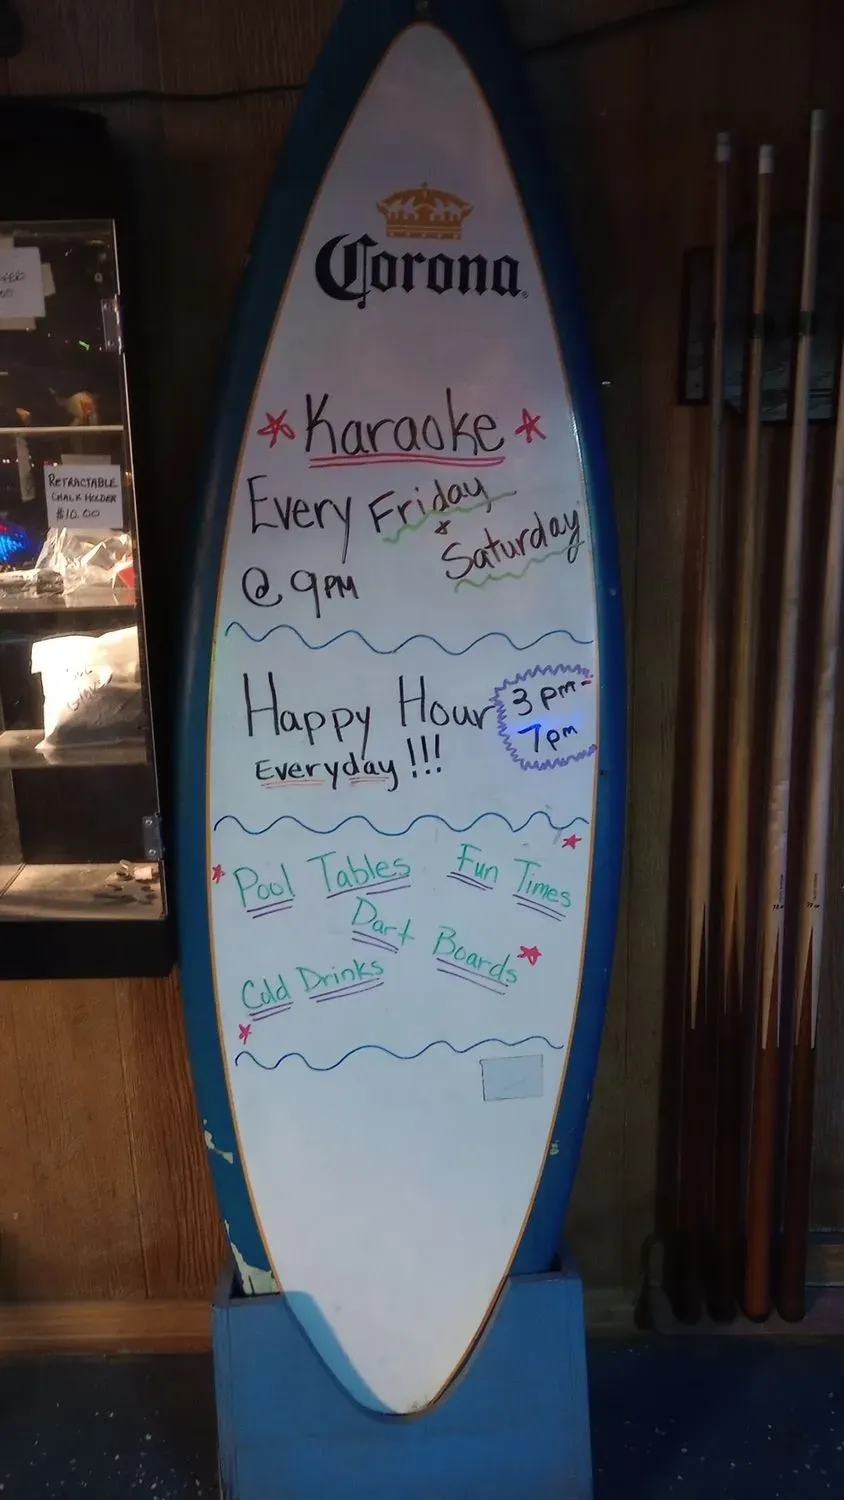 Corona
Karaoke
Every Friday
& Saturday
@ 9PM
Happy Hour
3pm-
7pm
Everyday!!!
Pool Tables
Fun Times
Dart Boards
Cold Drinks
RETRACTABLE
CHALK HOLDER
$10.00